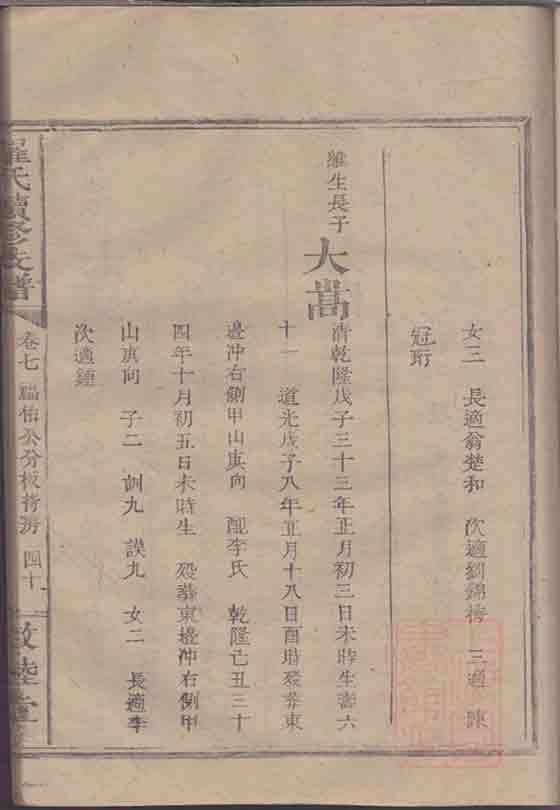 女三 長適翁楚和 次適劉錦榜 三適陳
冠珩
維生長子 大嵩 清乾隆戊子三十三年正月初三日未時生壽六
十一 道光戊子八年正月十八日酉時殁葬東
邊冲右側甲山庚向 配李氏 乾隆己丑三十
四年十月初五日未時生 殁葬東邊冲右側甲
山庚向 子二 訓九 謨九 女二 長適李
次適鍾
羅氏續修支譜
卷七 公分板 房 四十
敦睦堂